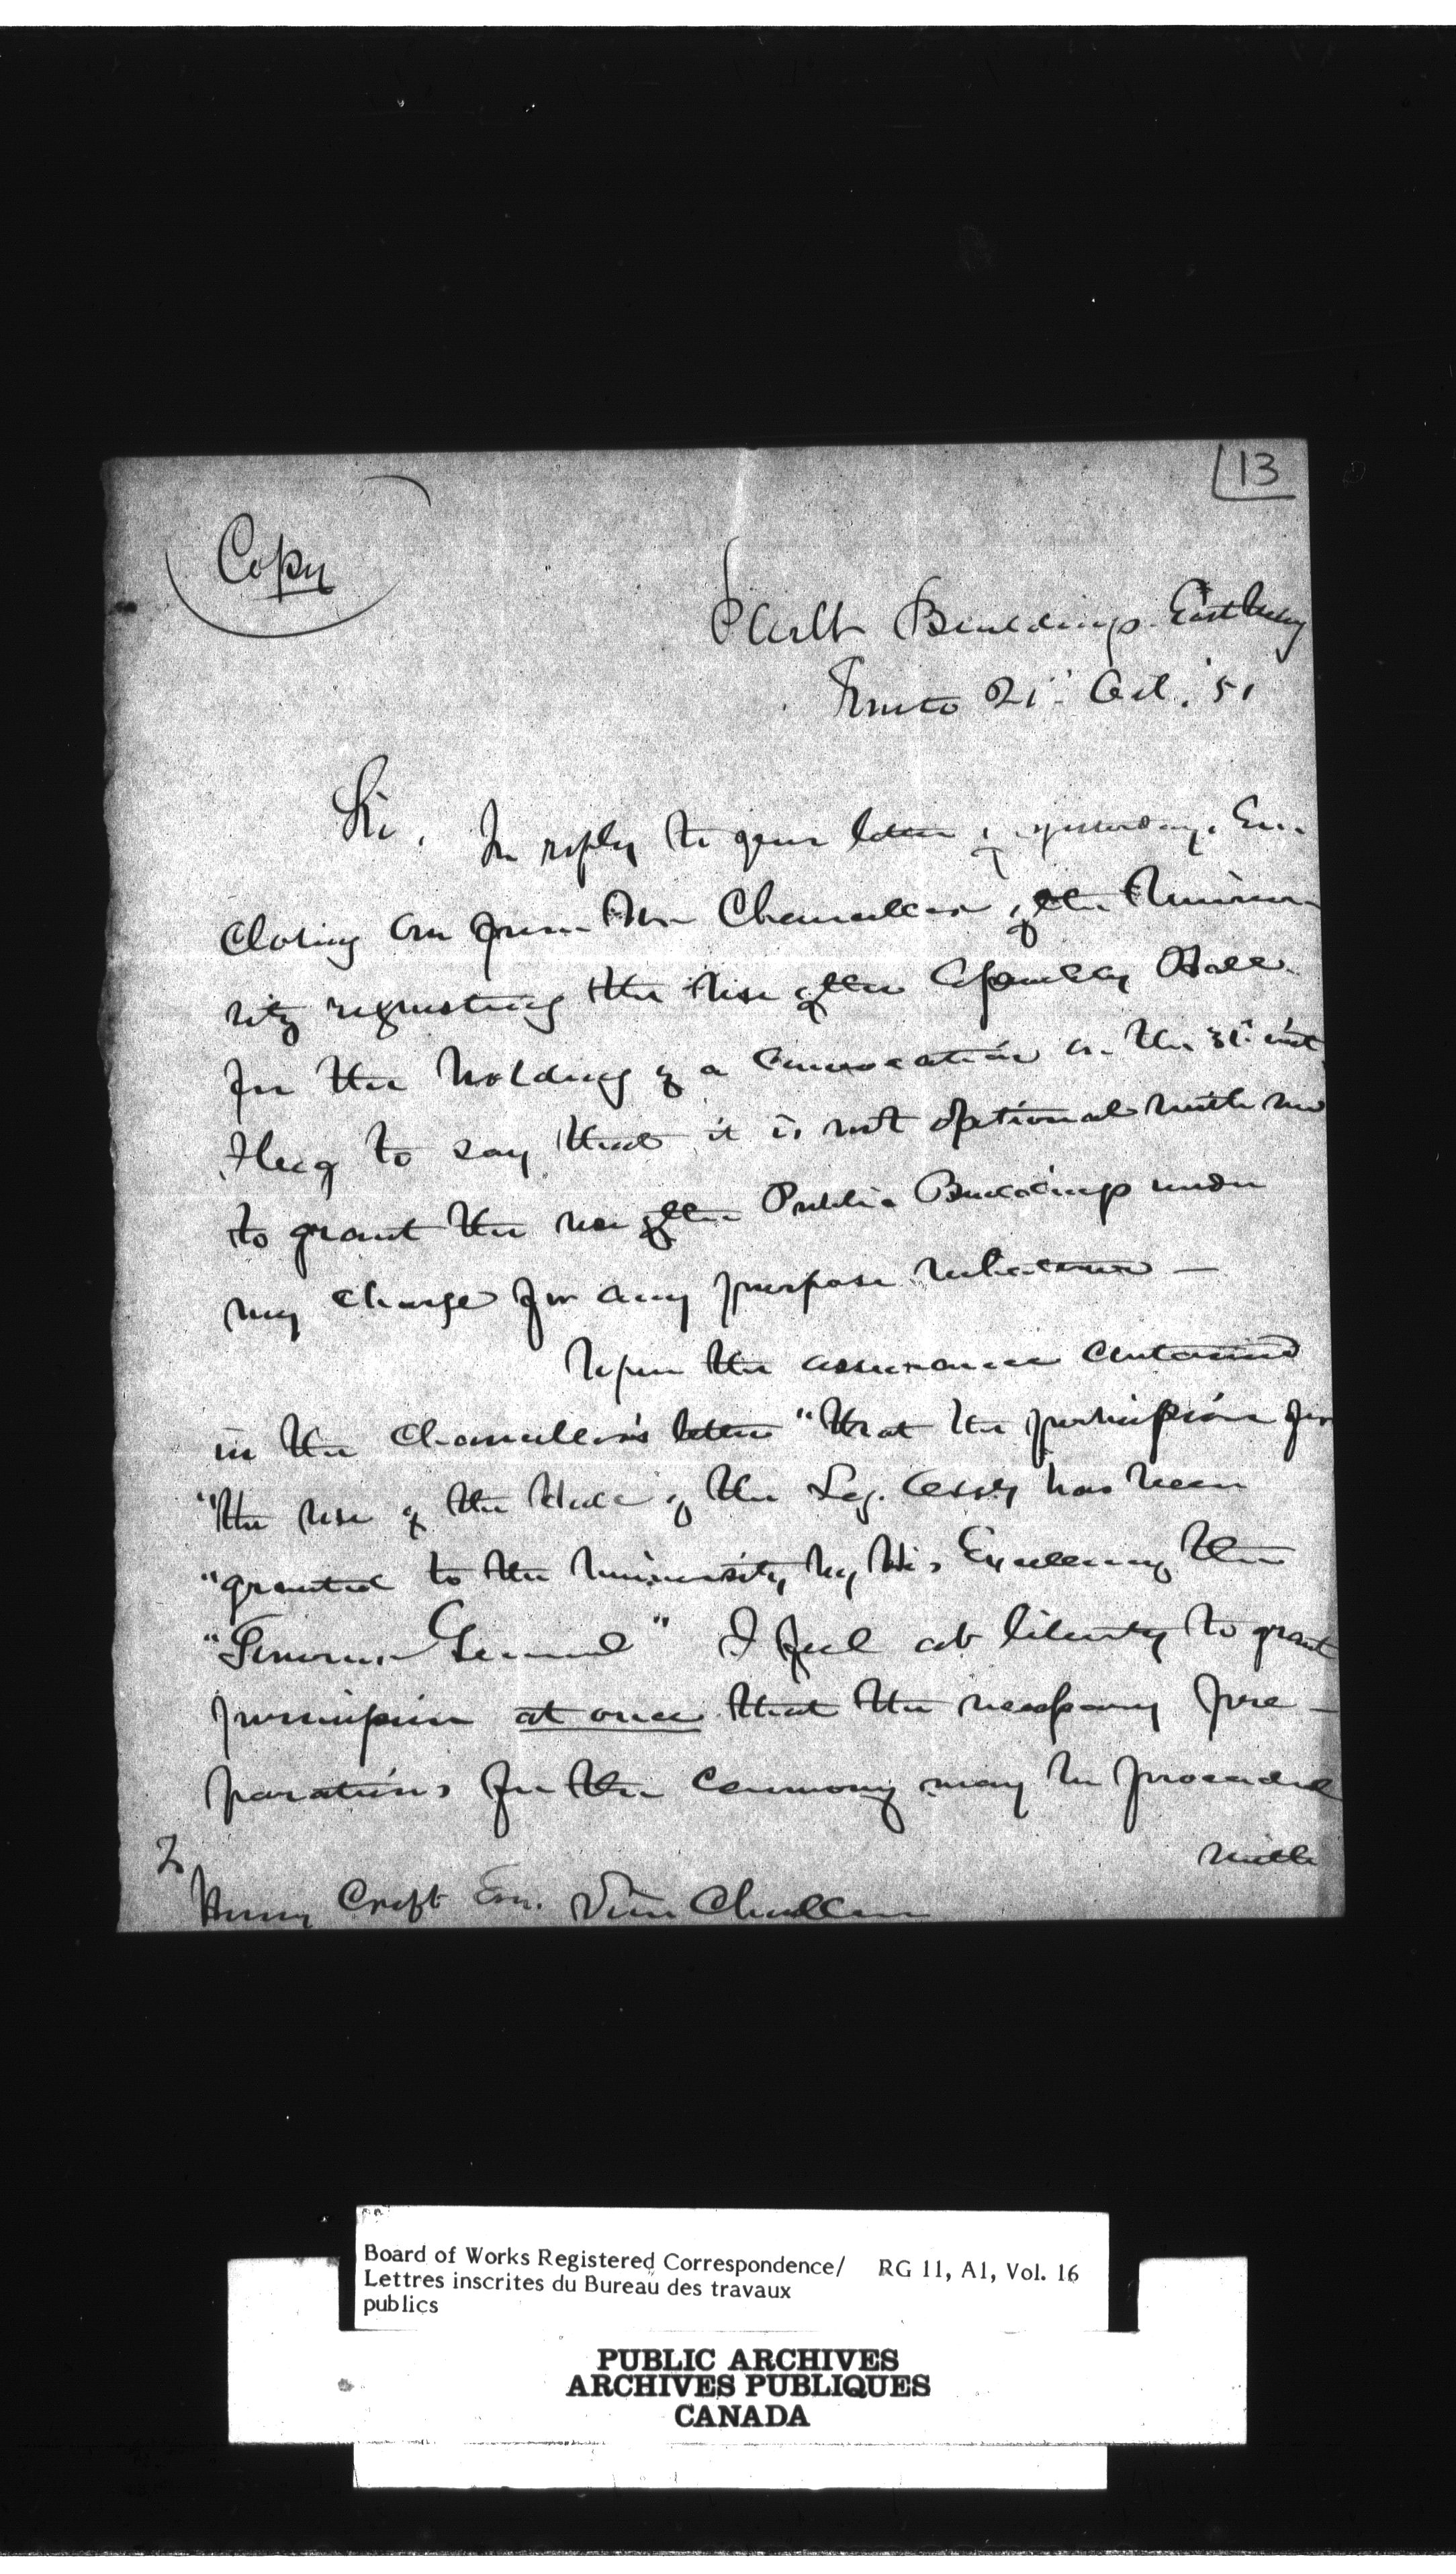 13
Copy
Parlt Buildings East Wing
Toronto 21st Oct. '51
Sir, In reply to your letter of yesterday. En-
closing one from the Chancellor of the Univer
sity requesting the use of the Assembly Hall
for the holding of a Convocation on the 31st inst
I beg to say that it is not optional with me
to grant the use of the Public Buildings under
my charge for any purpose whatever —
Upon the assurance contained
in the Chancellor's letter "that the permission for
"the use of the Hall of the Leg. Assy has been
"granted to the University by His Excellency the
"Governor General" I feel at liberty to grant
permission at once that the necessary pre-
parations for the ceremony may be proceeded
with
To
Henry Croft Esq. Vice Chancellor
Board of Works Registered Correspondence/ RG 11, A1, Vol. 16
Lettres inscrites du Bureau des travaux
publics
PUBLIC ARCHIVES
ARCHIVES PUBLIQUES
CANADA